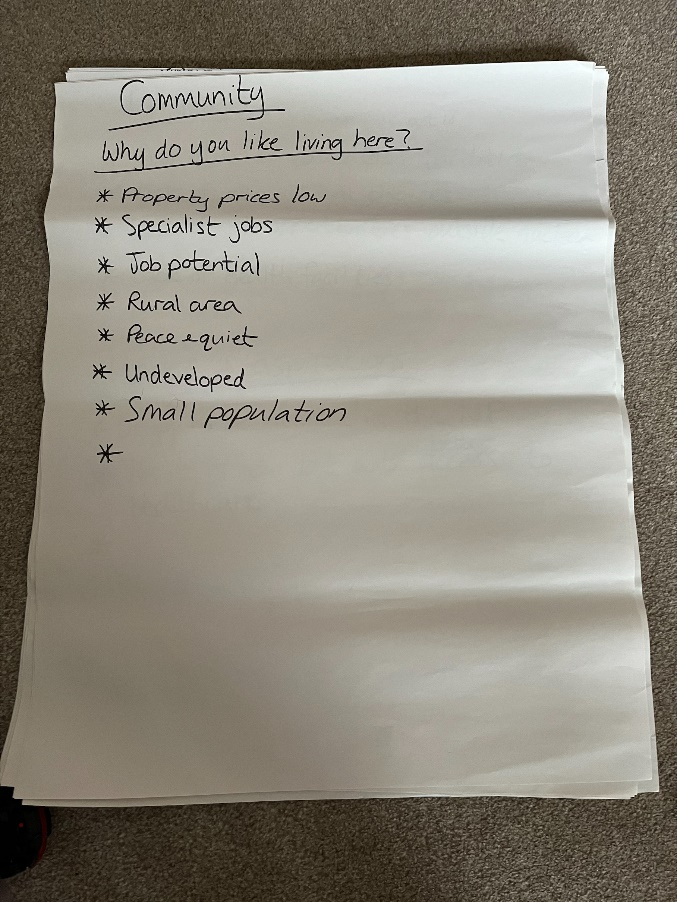 Community
Why do you like living here?
* Property prices low
* Specialist jobs
* Job potential
* Rural area
* Peace & quiet
* Undeveloped
* Small population
*